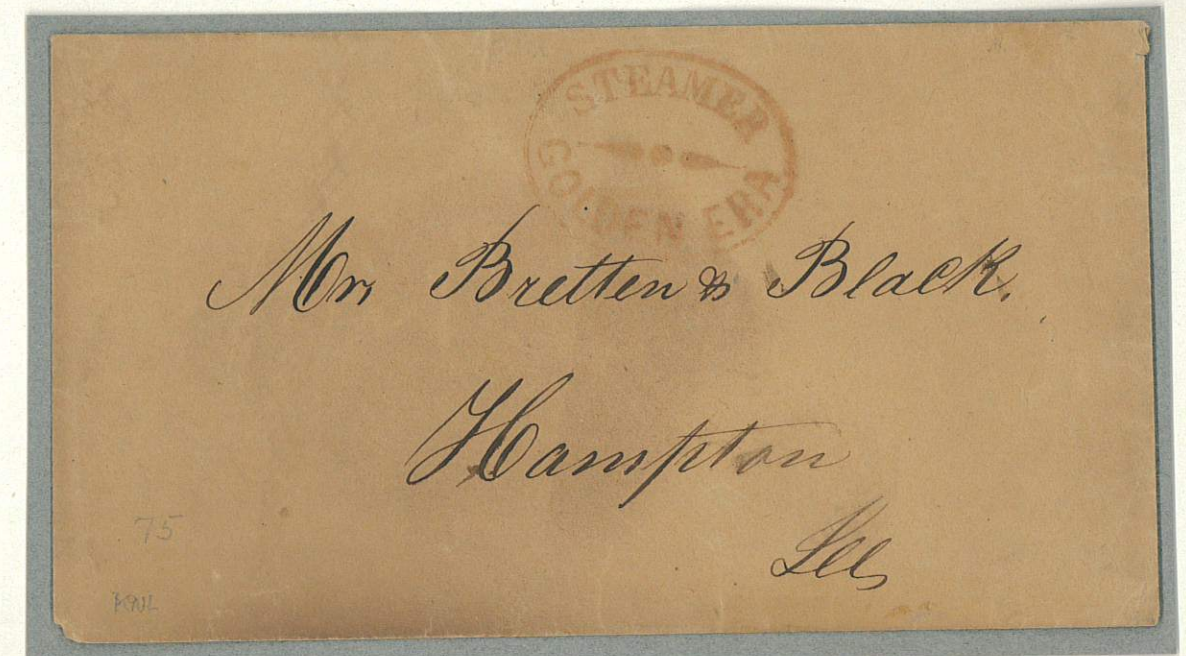 STEAMER
GOLDEN ERA
Mr. Bretten & Black.
Hampton
Ills
75